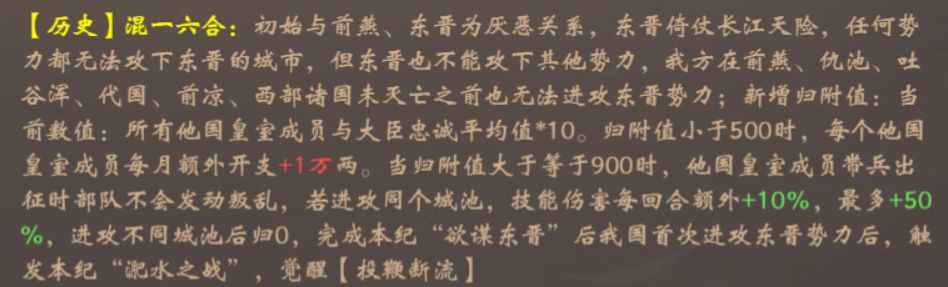 【历史】混一六合：初始与前燕、东晋为厌恶关系，东晋倚仗长江天险，任何势
力都无法攻下东晋的城市，但东晋也不能攻下其他势力，我方在前燕、仇池、吐
谷浑、代国、前凉、西部诸国未灭亡之前也无法进攻东晋势力；新增归附值：当
前数值：所有他国皇室成员与大臣忠诚平均值*10。归附值小于500时，每个他国
皇室成员每月额外开支+1万两。当归附值大于等于900时，他国皇室成员带兵出
征时部队不会发动叛乱，若进攻同个城池，技能伤害每回合额外+10%，最多+50
%，进攻不同城池后归0，完成本纪“欲谋东晋”后我国首次进攻东晋势力后，触
发本纪“淝水之战”，觉醒【投鞭断流】